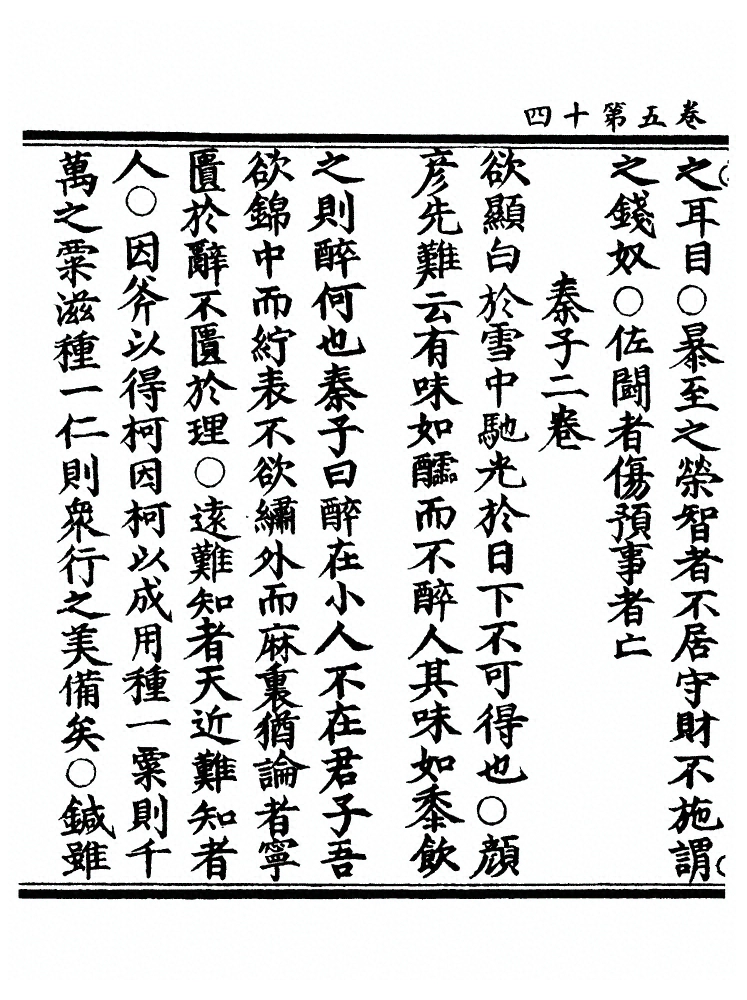 卷五第十四
之耳目○暴至之榮智者不居守財不施謂
之錢奴○佐鬭者傷預事者亡
秦子二卷
欲顯白於雪中馳光於日下不可得也○顔
彦先難云有味如醹而不醉人其味如黍飲
之則醉何也秦子曰醉在小人不在君子吾
欲錦中而紵表不欲繡外而麻裏猶論者寧
匱於辭不匱於理○遠難知者天近難知者
人○因斧以得柯因柯以成用種一粟則千
萬之粟滋種一仁則衆行之美備矣○鍼雖